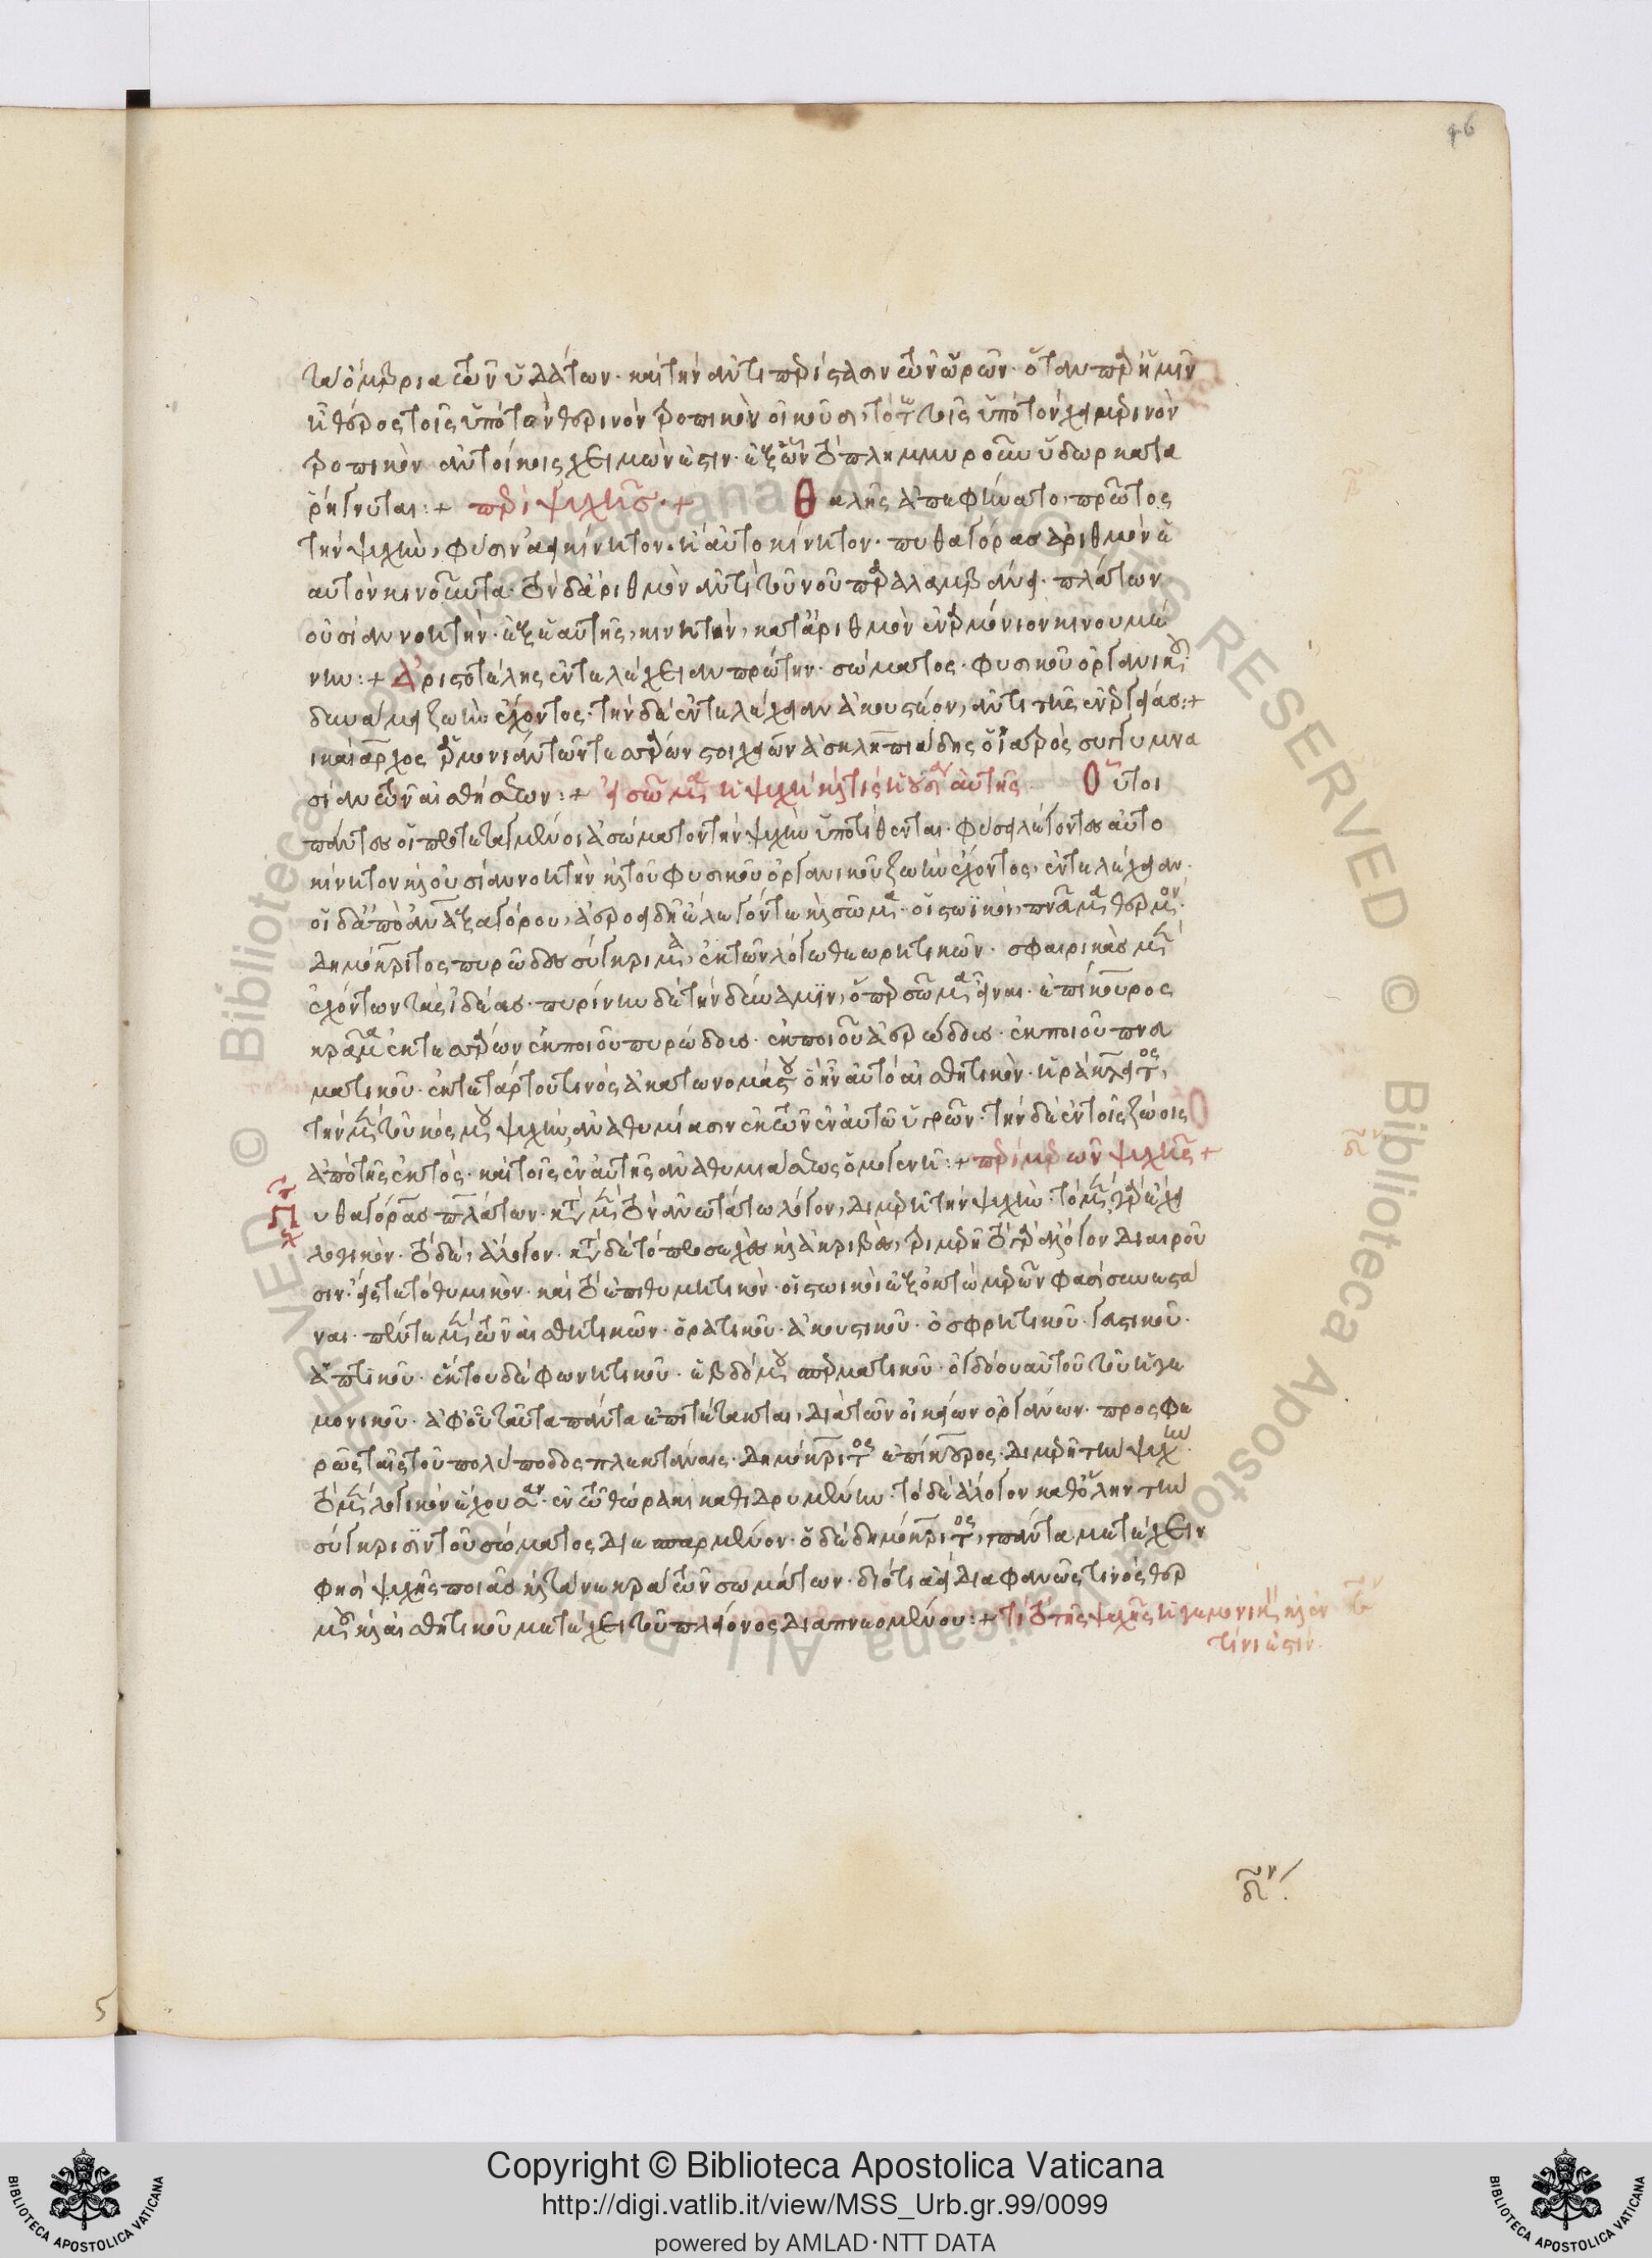 46
τὰ ὄμβρια τῶν ὑδάτων· καὶ τὴν ἀντιπερίστασιν τῶν ὡρῶν· ὅταν παρ' ἡμῖν
ἢ θέρος τοῖς ὑπὸ τὸν θερινὸν τροπικὸν οἰκοῦσι, τότε τοῖς ὑπὸ τὸν χειμερινὸν
τροπικὸν ἀντοίκοις χειμών ἐστιν· ἐξ ὧν τὸ πλημμυροῦν ὕδωρ κατα
ρήγνυται:+ περὶ ψυχῆς·+ Θαλῆς ἀπεφήνατο πρῶτος
τὴν ψυχὴν, φύσιν ἀεικίνητον· ἢ αὐτοκίνητον· πυθαγόρας ἀριθμὸν ἑ
αυτὸν κινοῦντα· τὸν δ' ἀριθμὸν ἀντὶ τοῦ νοῦ παραλαμβάνει· πλάτων
οὐσίαν νοητὴν· ἐξ ἑαυτῆς, κινητὴν, κατ' ἀριθμὸν ἐναρμόνιον κινουμέ
νην:+ Ἀριστοτέλης ἐντελέχειαν πρώτην· σώματος· φυσικοῦ ὀργανικοῦ·
δυνάμει ζωὴν ἔχοντος· τὴν δὲ ἐντελέχειαν ἀκουστέον, ἀντὶ τῆς ἐνεργείας:+
ικαίαρχος ἁρμονίαν τῶν τεσσάρων στοιχείων ἀσκληπιάδης ὁ ἰατρὸς συγγυμνα
σίαν τῶν αἰσθήσεων:+ εἰ σῶμα ἡ ψυχὴ καὶ τίς ἡ οὐσία αὐτῆς Οὗτοι
πάντες οἱ προτεταγμένοι ἀσώματον τὴν ψυχὴν ὑποτίθενται· φύσει λέγοντες αὐτο
κίνητον καὶ οὐσίαν νοητὴν καὶ τοῦ φυσικοῦ ὀργανικοῦ ζωὴν ἔχοντος, ἐντελέχειαν·
οἱ δ' ἀπὸ ἀναξαγόρου, ἀεροειδῆ ἔλεγόν τε καὶ σῶμα· οἱ στωϊκοὶ, πνεῦμα θερμόν·
Δημόκριτος πυρῶδες σύγκριμα, ἐκ τῶν λόγω θεωρητικῶν· σφαιρικὰς μὲν
ἐχόντων τὰς ἰδέας· πυρίνην δὲ τὴν δύναμιν, ὅπερ σῶμα εἶναι· ἐπίκουρος
κρᾶμα ἐκ τεσσάρων ἐκ ποιοῦ πυρώδους· ἐκ ποιοῦ ἀερώδους· ἐκ ποιοῦ πνευ
ματικοῦ· ἐκ τετάρτου τινὸς ἀκατωνομάστου ὃ ἦν αὐτὸ αἰσθητικόν· ἡράκλειτος,
τὴν μὲν τοῦ κόσμου ψυχὴν, ἀναθυμίασιν ἐκ τῶν ἐν αὐτῶ ὑγρῶν· τὴν δὲ ἐν τοῖς ζώοις
ἀπὸ τῆς ἐκτός· καὶ τοῖς ἐν αὐτῆς ἀναθυμιάσεως ὁμογενῆ:+ περὶ μερῶν ψυχῆς+
Πυθαγόρας πλάτων· κατὰ μὲν τὸν ἀνωτάτω λόγον, διμερῆ τὴν ψυχὴν· τὸ μὲν γὰρ ἔχει
λογικὸν· τὸ δὲ, ἄλογον· κατὰ δὲ τὸ προσεχὲς καὶ ἀκριβὲς, τριμερῆ τὸ γὰρ ἄλογον διαιροῦ
σιν· εἴς τε τὸ θυμικὸν· καὶ τὸ ἐπιθυμητικὸν· οἱ στωικοὶ ἐξ ὀκτὼ μερῶν φασὶ συνεστά
ναι· πέντε μὲν τῶν αἰσθητικῶν· ὁρατικοῦ· ἀκουστικοῦ· ὀσφρητικοῦ· γευστικοῦ·
ἁπτικοῦ· ἕκτου δὲ φωνητικοῦ· ἑβδόμου σπερματικοῦ· ὀγδόου αὐτοῦ τοῦ ἡγε
μονικοῦ· ἀφ' οὗ ταῦτα πάντα ἐπιτέτακται, διὰ τῶν οἰκείων ὀργάνων· προσφε
ρῶς ταῖς τοῦ πολύποδος πλεκτάναις· Δημόκριτος ἐπίκουρος· διμερῆ τὴν ψυχὴν·
τὸ μὲν λογικὸν ἔχουσαν· ἐν τῶ θώρακι καθιδρυμένην· τὸ δὲ ἄλογον καθ' ὅλην τὴν
σύγκρισιν τοῦ σώματος διεσπαρμένον· ὁ δὲ δημόκριτος, πάντα μετέχειν
φησὶ ψυχῆς ποιᾶς καὶ τὰ νεκρὰ τῶν σωμάτων· διότι ἀεὶ διαφανῶς τινὸς θερ
μοῦ καὶ αἰσθητικοῦ μετέχει τοῦ πλείονος διαπνεομένου:+ τί τὸ τῆς ψυχῆς ἡγεμονικὸν καὶ ἐν
τίνι ἐστίν·
Copyright © Biblioteca Apostolica Vaticana
http://digi.vatlib.it/view/MSS_Urb.gr.99/0099
powered by AMLAD·NTT DATA